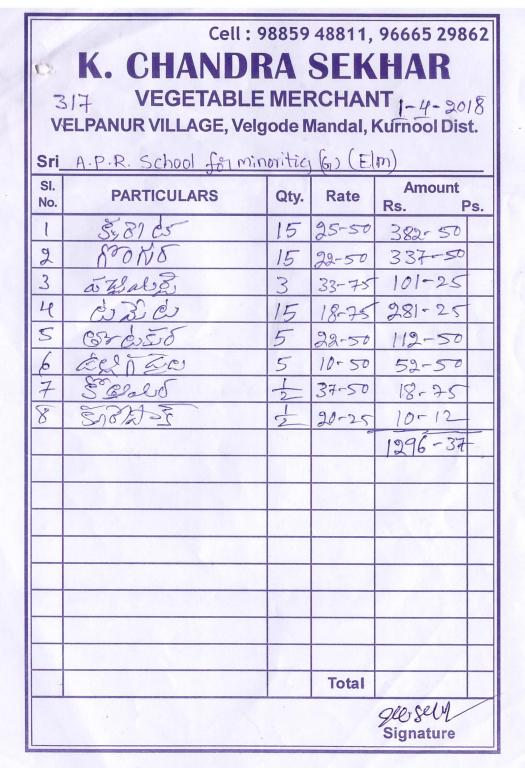 Cell : 98859 48811, 96665 29862
K. CHANDRA SEKHAR
317 VEGETABLE MERCHANT 1-4-2018
VELPANUR VILLAGE, Velgode Mandal, Kurnool Dist.
Sri A.P.R. School for minorities (G) (E/m)
Sl. No. PARTICULARS Qty. Rate Amount Rs. Ps.
1 క్యారెట్ 15 25-50 382-50
2 గోంగూర 15 22-50 337-50
3 పచ్చిమిర్చి 3 33-75 101-25
4 టమేట 15 18-75 281-25
5 తోటకూర 5 22-50 112-50
6 ఉల్లిగడ్డలు 5 10-50 52-50
7 కొత్తిమీర 1/2 37-50 18-75
8 1/2 20-25 10-12
1296-37
Total
Signature